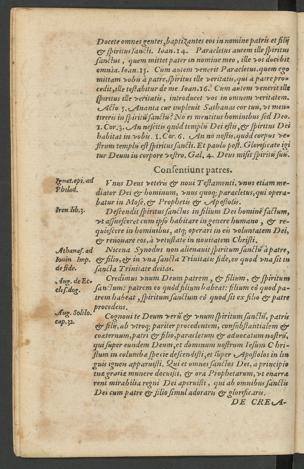 Docete omnes gentes, baptizantes eos in nomine patris et filij
& spiritus sancti. Ioan. 14. Paracletus autem ille spiritus
sanctus, quem mittet pater in nomine meo, ille vos docebit
omnia. Ioan. 15. Cum autem venerit Paracletus, quem ego
mittam vobis à patre, spiritus ille veritatis, qui à patre pro-
cedit, ille testabitur de me Ioan. 16. Cum autem venerit ille
spiritus ille veritatis, introducet vos in omnem veritatem.
Acto. 5. Anania cur impleuit Sathanas cor tuū, vt men-
tireris in spiritū sanctū? No es mentitus hominibus sed Deo.
1. Cor. 3. An nescitis quòd templū Dei estis, & spiritus Dei
habitat in vobis. 1. Cor. 6. An nō nostis, quòd corpus ve-
strum templū est spiritus sancti. Et paulo post. Glorificate igi
tur Deum in corpore vestro. Gal. 4. Deus misit spiritū suū.
Consentiunt patres.
Ignat. epi. ad
Philad.
Vnus Deus veteris & noui Testamenti, vnus etiam me-
diator Dei & hominum, vnus quoq; paracletus, qui opera-
batur in Mose, & Prophetis & Apostolis.
Iren. lib. 3.
Descendit spiritus sanctus in filium Dei hominē factum,
vt assuesceret cum ipso habitare in genere humano, & re-
quiescere in hominibus, atq; operari in eis voluntatem Dei,
& renouare eos, à vetustate in nouitatem Christi.
Athanas. ad
Iouin. Imp.
de fide.
Nicena Synodus non alienauit spiritum sanctū à patre,
& filio, & in vna sancta Trinitate fide, eo quod vna sit in
sancta Trinitate deitas.
Aug. de Ec-
cles. dog.
Credimus vnum Deum patrem, & filium, & spiritum
sanctum: patrem eo quòd filium habeat: filium eò quod pa-
trem habeat, spiritum sanctum eò quod sit ex filio & patre
procedens.
Aug. Solilo.
cap. 32.
Cognoui te Deum verū & vnum spiritum sanctū, patris
& filij, ab vtroq; pariter procedentem, consubstantialem &
coaternum, patri & filio, paracletum & aduocatum nostrū,
qui super eundem Deum, et dominum nostrum Iesum Chri-
stum in columbæ specie descendisti, et super Apostolos in lin
guis igneis apparuisti. Qui et omnes sanctos Dei, a principio
tuæ gratiæ munere docuisti, & ora Prophetarum, vt enarra
rent mirabilia regni Dei aperuisti, qui ab omnibus sanctis
Dei cum patre & filio simul adoraris & glorificaris.
DE CREA-